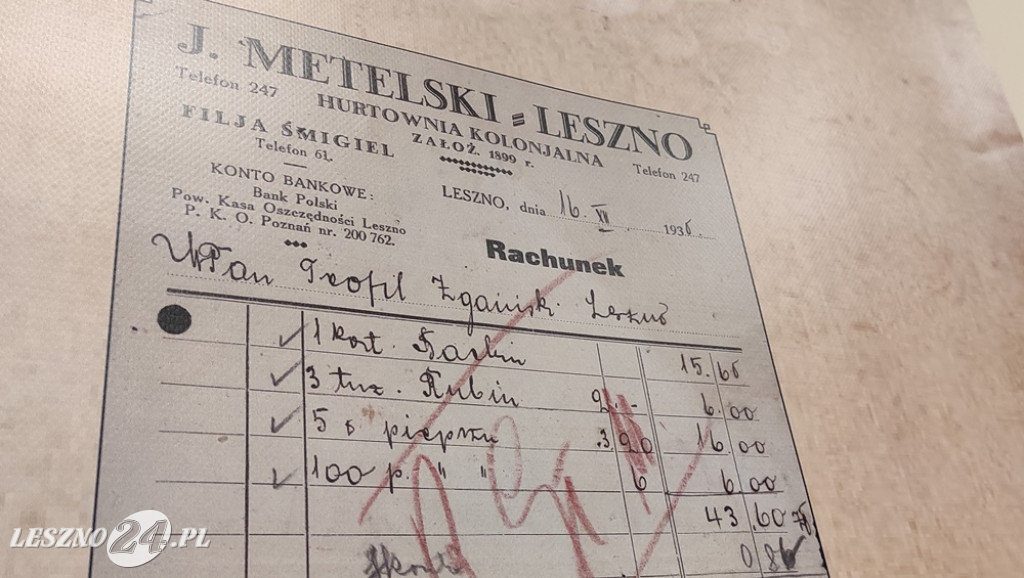 J. METELSKI = LESZNO
Telefon 247
HURTOWNIA KOLONJALNA
ZAŁOŻ. 1890 r.
Telefon 247
FILJA ŚMIGIEL
Telefon 61.
KONTO BANKOWE:
Bank Polski
Pow. Kasa Oszczędności Leszno
P. K. O. Poznań nr. 200 762.
LESZNO, dnia 16. XII. 1936.
Rachunek
WPan Teofil
1 kart. 15.66
3 tuz. Rubin 2.- 6.00
5 pieprzu 3.20 16.00
100 p. " " 6 6.00
43.60
0.86
LESZNO24.PL